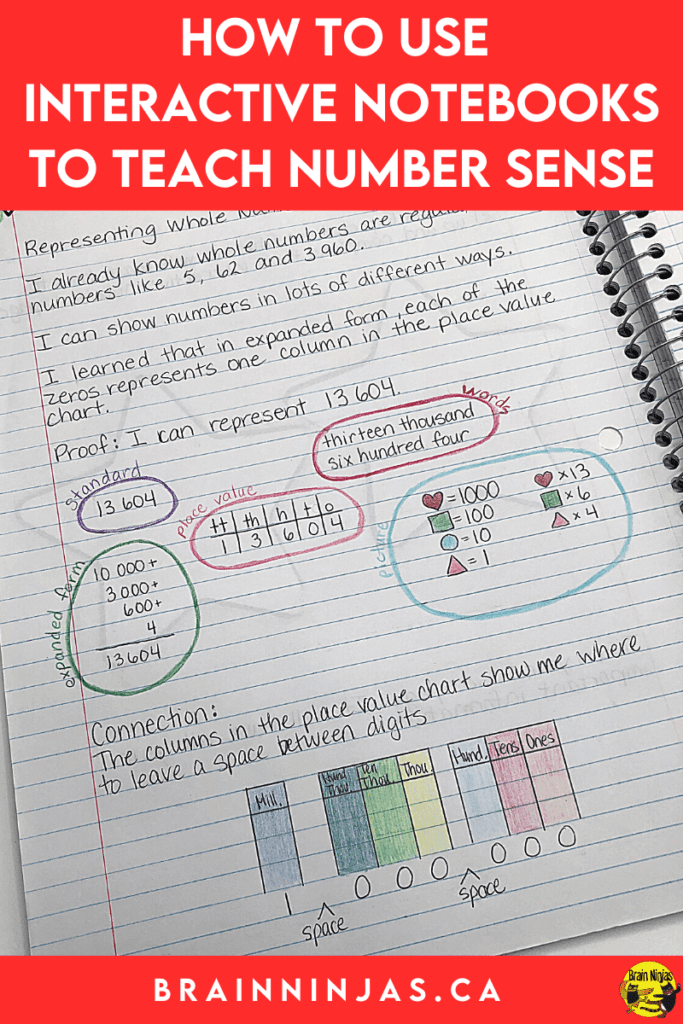 HOW TO USE
INTERACTIVE NOTEBOOKS
TO TEACH NUMBER SENSE
Representing Whole
I already know whole numbers are
numbers like 5, 62 and 3 960.
I can show numbers in lots of different ways.
I learned that in expanded form, each of the
zeros represents one column in the place value
chart.
Proof: I can represent 13 604.
words
thirteen thousand
six hundred four
standard
13 604
place value
tt th h t o
1 3 6 0 4
picture
=1000
=100
=10
=1
x13
x6
x4
expanded form
10 000+
3 000+
600+
4
13604
Connection:
The columns in the place value chart show me where
to leave a space between digits
Mill.
Hund. Thou.
Ten Thou.
Thou.
Hund.
Tens
Ones
1 0 0 0 0 0 0
space
space
BRAINNINJAS.CA
Brain Ninjas